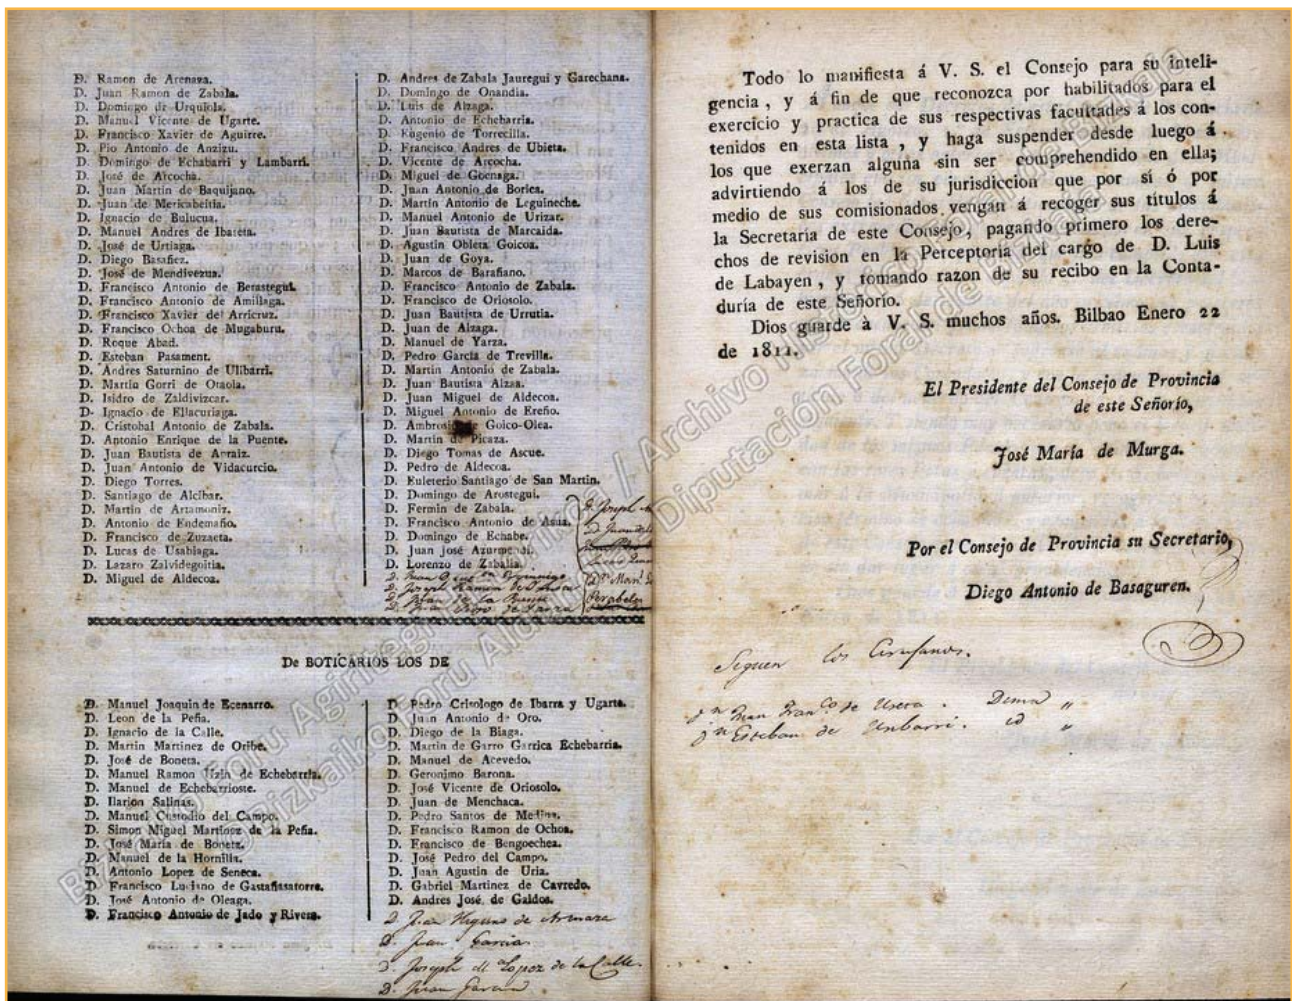 D. Ramon de Arenaza.
D. Juan Ramon de Zabala.
D. Domingo de Urquiola.
D. Manuel Vicente de Ugarte.
D. Francisco Xavier de Aguirre.
D. Pio Antonio de Anzizu.
D. Domingo de Echabarri y Lambarri.
D. José de Arcocha.
D. Juan Martin de Baquijano.
D. Juan de Mericabeitia.
D. Ignacio de Bulucua.
D. Manuel Andres de Ibaseta.
D. José de Urtiaga.
D. Diego Basañez.
D. José de Mendivezua.
D. Francisco Antonio de Berastegui.
D. Francisco Antonio de Amillaga.
D. Francisco Xavier del Arricruz.
D. Francisco Ochoa de Mugaburu.
D. Roque Abad.
D. Esteban Pasament.
D. Andres Saturnino de Ulibarri.
D. Martin Gorri de Otaola.
D. Isidro de Zaldivizcar.
D. Ignacio de Ellacuriaga.
D. Cristobal Antonio de Zabala.
D. Antonio Enrique de la Puente.
D. Juan Bautista de Arraiz.
D. Juan Antonio de Vidacurcio.
D. Diego Torres.
D. Santiago de Alcibar.
D. Martin de Artamoniz.
D. Antonio de Endemaño.
D. Francisco de Zuzaeta.
D. Lucas de Usabiaga.
D. Lazaro Zalvidegoitia.
D. Miguel de Aldecoa.
D. Andres de Zabala Jauregui y Garechana.
D. Domingo de Onandia.
D. Luis de Alzaga.
D. Antonio de Echebarria.
D. Eugenio de Torrecilla.
D. Francisco Andres de Ubieta.
D. Vicente de Arcocha.
D. Miguel de Goenaga.
D. Juan Antonio de Borica.
D. Martin Antonio de Leguineche.
D. Manuel Antonio de Urizar.
D. Juan Bautista de Marcaida.
D. Agustin Obieta Goicoa.
D. Juan de Goya.
D. Marcos de Barañano.
D. Francisco Antonio de Zabala.
D. Francisco de Oriosolo.
D. Juan Bautista de Urrutia.
D. Juan de Alzaga.
D. Manuel de Yarza.
D. Pedro Garcia de Trevilla.
D. Martin Antonio de Zabala.
D. Juan Bautista Alzaa.
D. Juan Miguel de Aldecoa.
D. Miguel Antonio de Ereño.
D. Ambrosio de Goico-Olea.
D. Martin de Picaza.
D. Diego Tomas de Ascue.
D. Pedro de Aldecoa.
D. Euleterio Santiago de San Martin.
D. Domingo de Arostegui.
D. Fermin de Zabala.
D. Francisco Antonio de Asua.
D. Domingo de Echabe.
D. Juan José Azurmendi.
D. Lorenzo de Zabalia.
D. Joseph Ramon de
D. Juan de la Puente
D. Joseph
De BOTICARIOS LOS DE
D. Manuel Joaquin de Ecenarro.
D. Leon de la Peña.
D. Ignacio de la Calle.
D. Martin Martinez de Oribe.
D. José de Boneta.
D. Manuel Ramon Uzin de Echebarria.
D. Manuel de Echebarrioste.
D. Ilarion Salinas.
D. Manuel Custodio del Campo.
D. Simon Miguel Martinez de la Peña.
D. José María de Boneta.
D. Manuel de la Hornilla.
D. Antonio Lopez de Seneca.
D. Francisco Luciano de Gastañasatorre.
D. José Antonio de Oleaga.
D. Francisco Antonio de Jado y Rivera.
D. Pedro Crisologo de Ibarra y Ugarte.
D. Juan Antonio de Oro.
D. Diego de la Biaga.
D. Martin de Garro Garrica Echebarria.
D. Manuel de Acevedo.
D. Geronimo Barona.
D. José Vicente de Oriosolo.
D. Juan de Menchaca.
D. Pedro Santos de Medina.
D. Francisco Ramon de Ochoa.
D. Francisco de Bengoechea.
D. José Pedro del Campo.
D. Juan Agustin de Uria.
D. Gabriel Martinez de Cavredo.
D. Andres José de Galdos.
D. Juan Higinio de
D. Juan Garcia
D. Joseph Lopez de la Calle.
D. Juan Garcia
Todo lo manifiesta á V. S. el Consejo para su inteli-
gencia, y á fin de que reconozca por habilitados para el
exercicio y practica de sus respectivas facultades á los con-
tenidos en esta lista, y haga suspender desde luego á
los que exerzan alguna sin ser comprehendido en ella;
advirtiendo á los de su jurisdiccion que por sí ó por
medio de sus comisionados vengan á recoger sus títulos á
la Secretaría de este Consejo, pagando primero los dere-
chos de revision en la Perceptoría del cargo de D. Luis
de Labayen, y tomando razon de su recibo en la Conta-
duría de este Señorío.
Dios guarde à V. S. muchos años. Bilbao Enero 22
de 1811.
El Presidente del Consejo de Provincia
de este Señorío,
José María de Murga.
Por el Consejo de Provincia su Secretario,
Diego Antonio de Basaguren.
Siguen los Cirujanos.
Dn Juan Franco de Usera. Dima "
Dn Esteban de Unbarri. id "
Bizkaiko Foru Agiritegi Historikoa / Archivo Histórico Foral de Bizkaia
Bizkaiko Foru Aldundia / Diputación Foral de Bizkaia